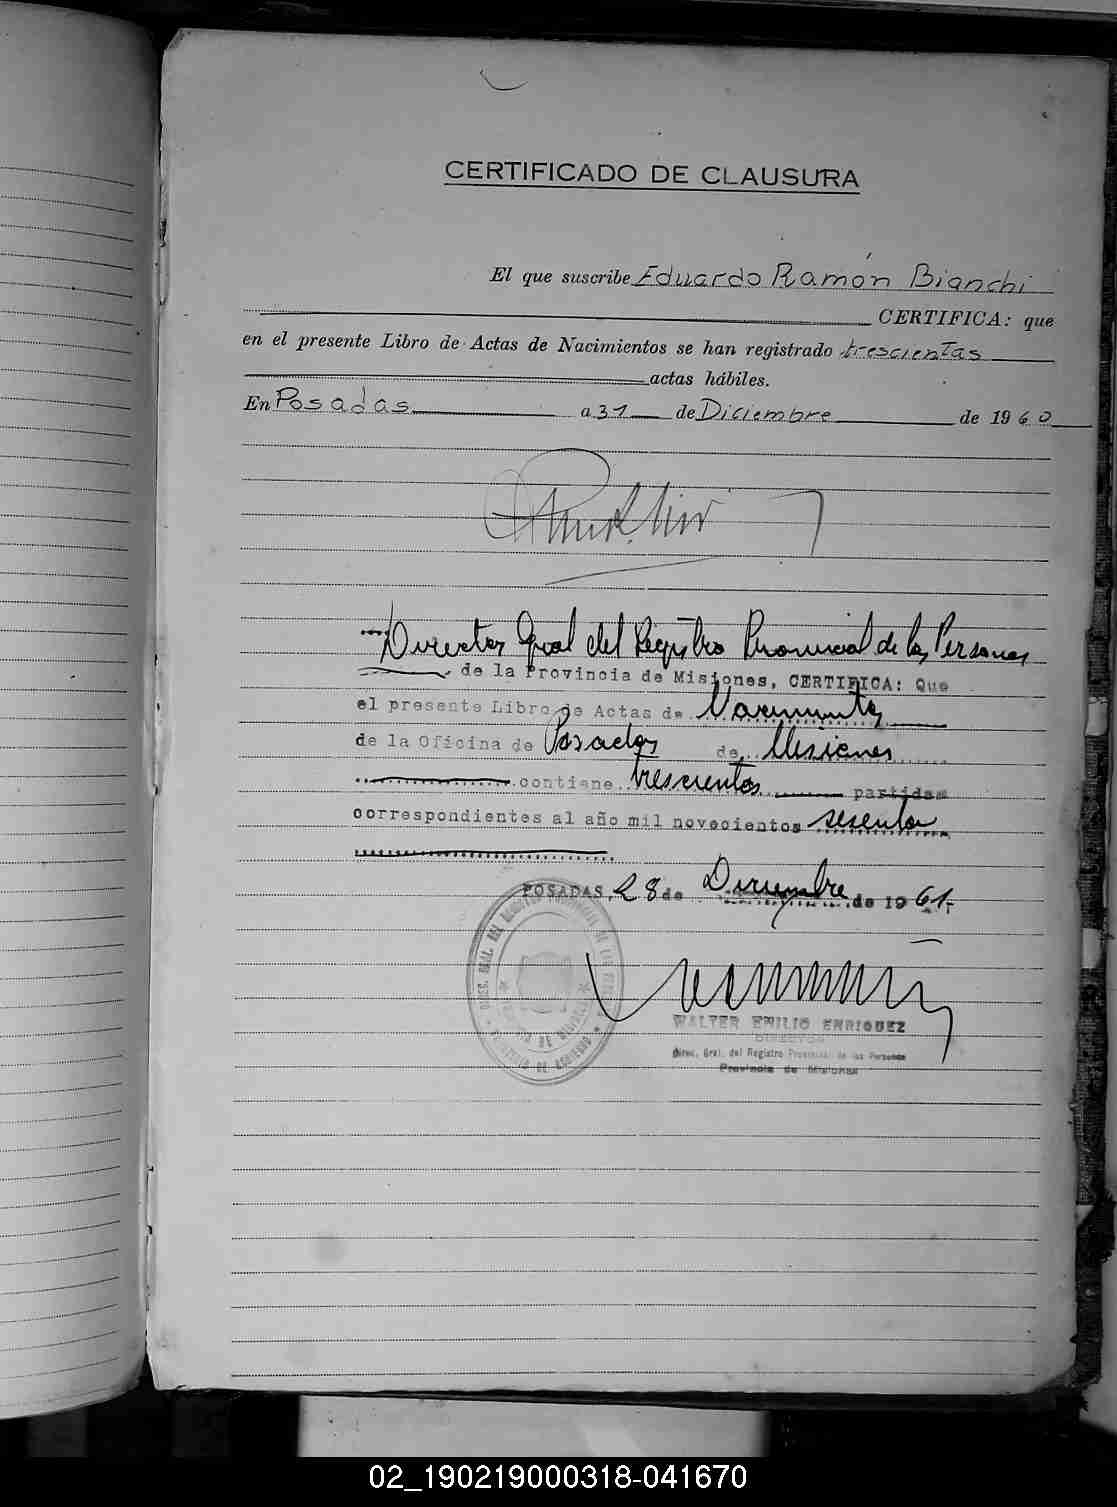 CERTIFICADO DE CLAUSURA
El que suscribe Eduardo Ramón Bianchi
CERTIFICA: que
en el presente Libro de Actas de Nacimientos se han registrado trescientas
actas hábiles.
En Posadas a 31 de Diciembre de 1960
Director Gral del Registro Provincial de las Personas
de la Provincia de Misiones, CERTIFICA: Que
el presente Libro de Actas de Nacimientos
de la Oficina de Posadas de Misiones
contiene trescientos partidas
correspondientes al año mil novecientos sesenta
POSADAS, 28 de Diciembre de 1961.-
WALTER EMILIO ENRIQUEZ
DIRECTOR
Direc. Gral. del Registro Provincial de las Personas
Provincia de Misiones
02_190219000318-041670